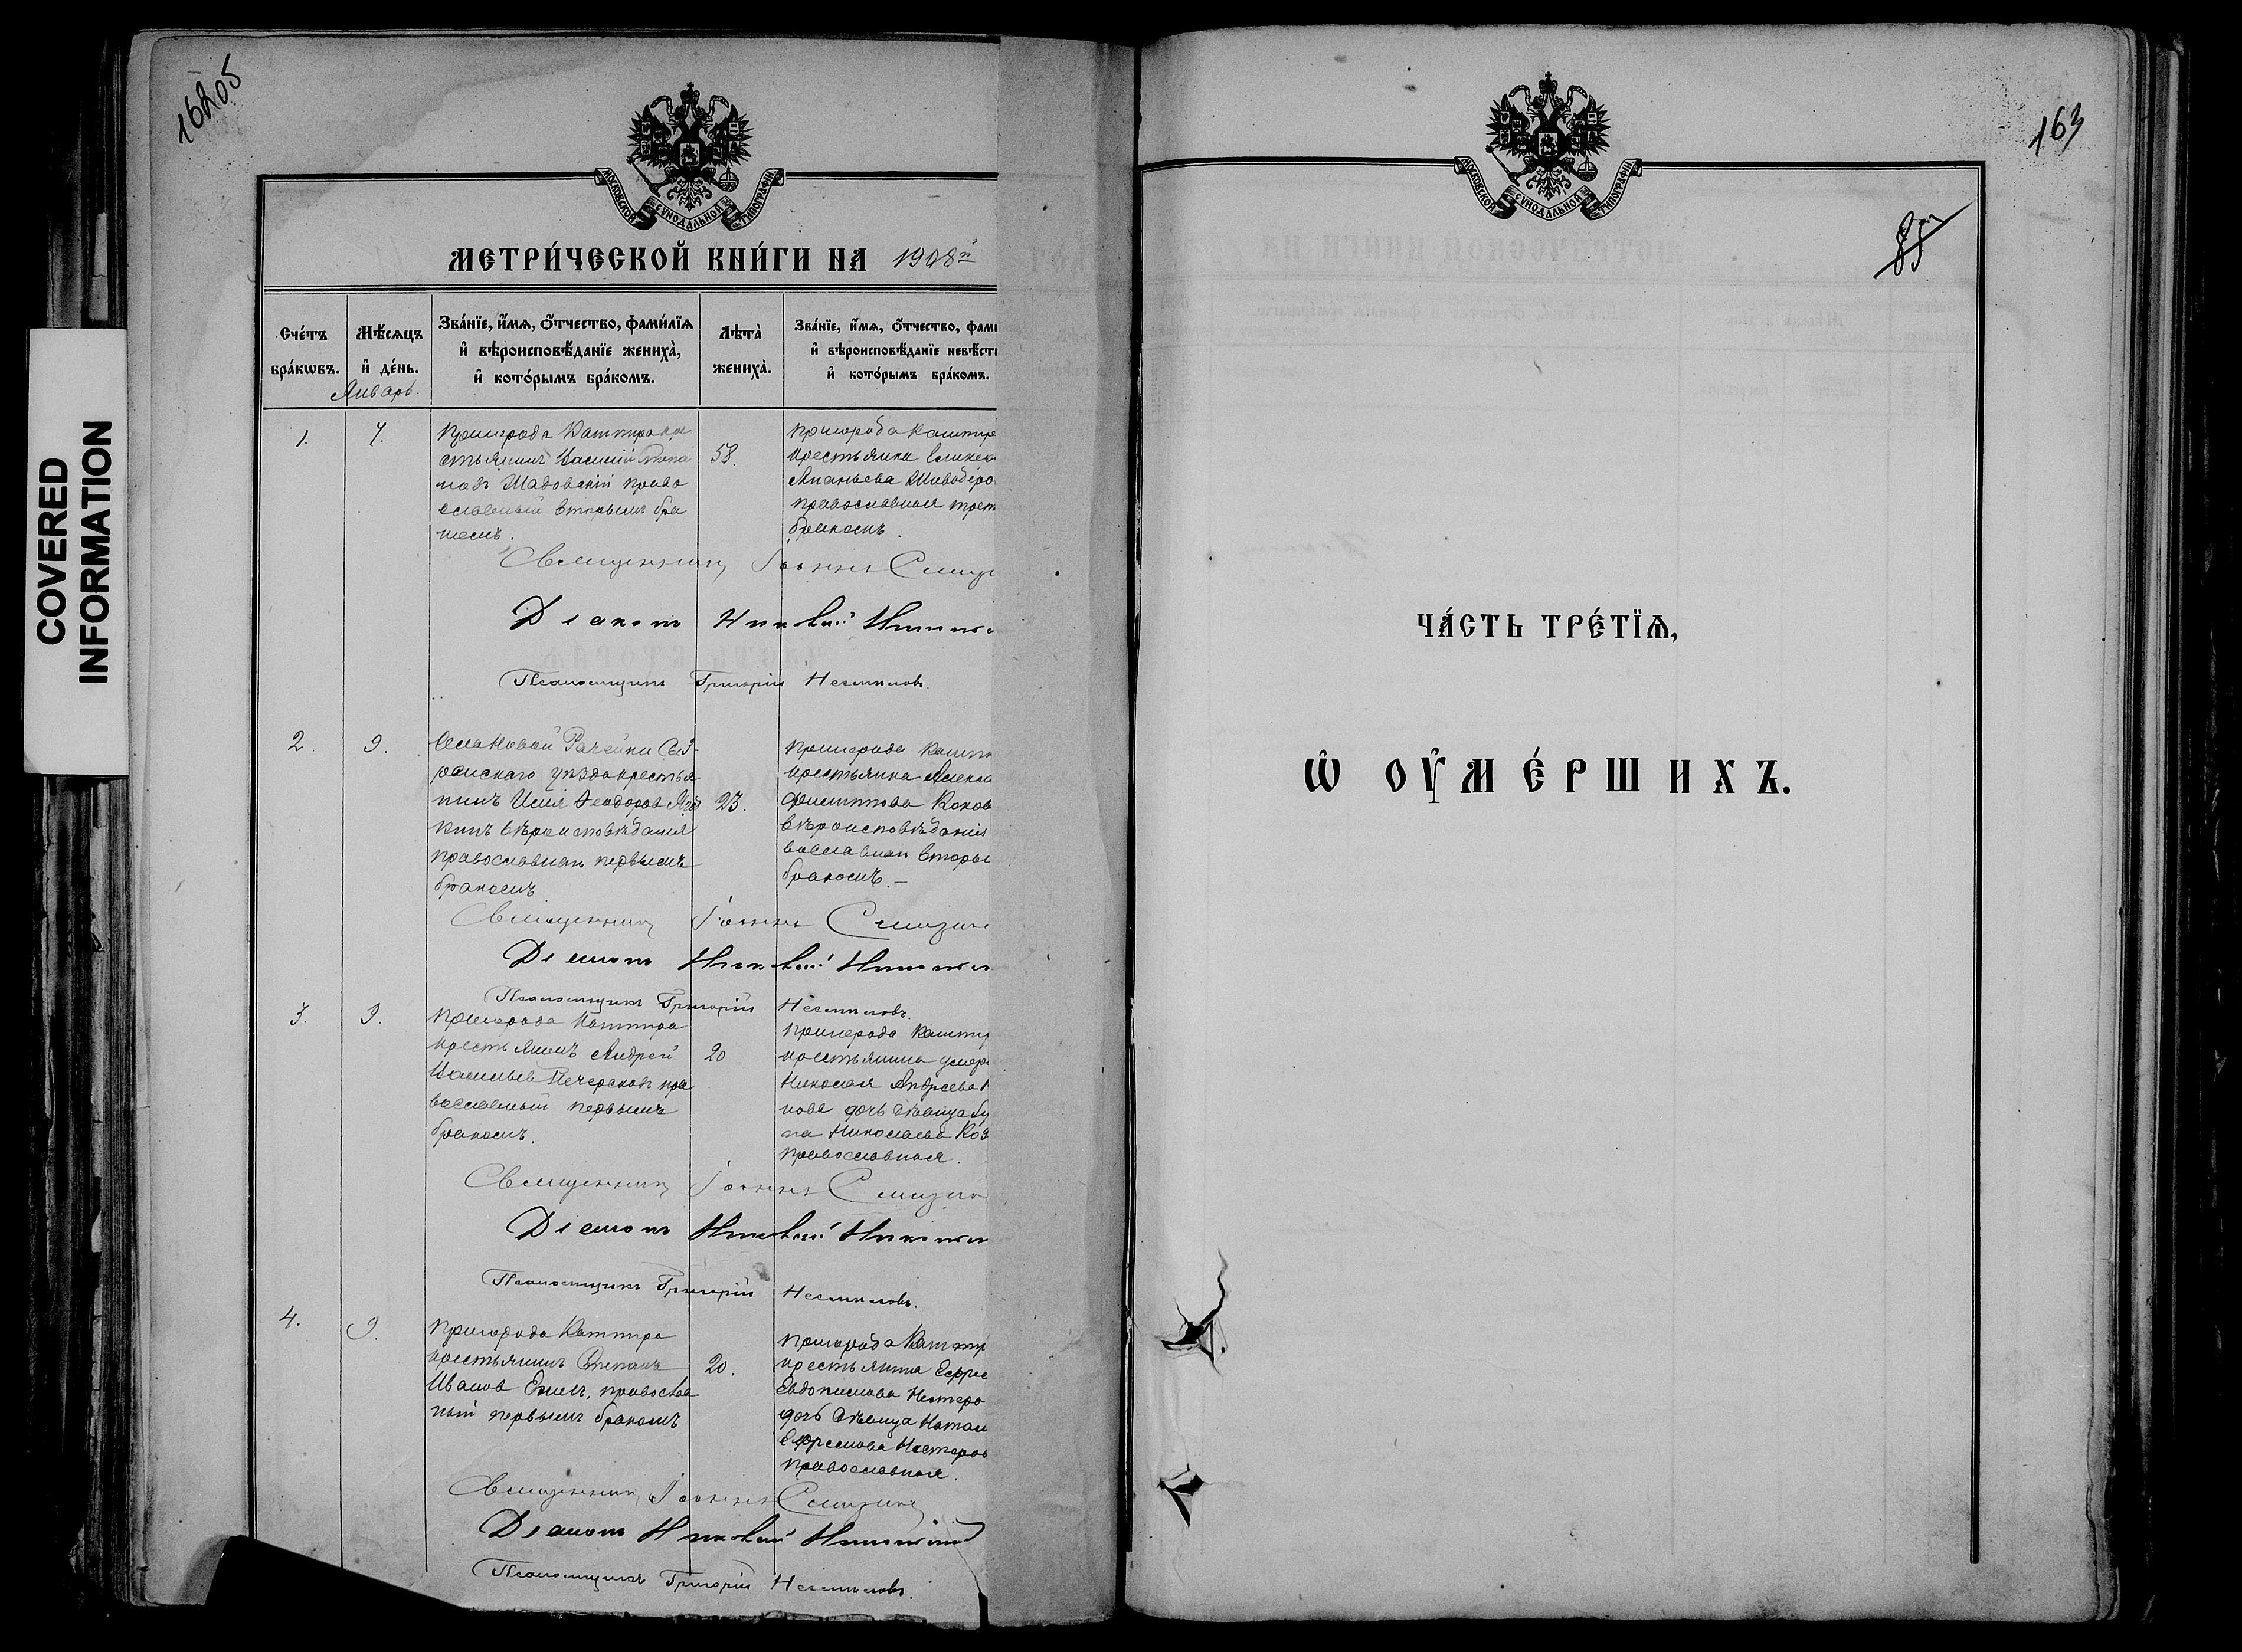 COVERED
INFORMATION
162об
МОСКОВСКОЙ СѴНОДАЛЬНОЙ ТИПОГРАФІИ.
МЕТРИ́ЧЕСКОЙ КНИ́ГИ НА 1908й
Сче́тъ
бра́кѡвъ.
Мѣ́сяцъ
и҆ де́нь.
Январь.
Зва́нїе, и҆́мѧ, ѻ҆́тчество, фами́лїѧ
и҆ вѣроисповѣ́данїе жениха̀,
и҆ кото́рымъ бра́комъ.
Лѣта̀
жениха̀.
Зва́нїе, и҆́мѧ, ѻ҆́тчество, фами
и҆ вѣроисповѣ́данїе невѣ́ст
и҆ кото́рымъ бра́комъ.
1.
7.
Пригорода Кашпира кре
стьянинъ Василій Степа
новъ Шадовскій право
славный вторымъ бра
комъ.
53.
пригорода Кашпир
крестьянка
Ананьева
православная трет
бракомъ.
Священникъ Іоаннъ
Діаконъ Николай
Псаломщикъ Григорій Несмѣловъ.
2.
9.
Села Новой Рачейки Сыз-
ранскаго уѣзда крестья
нинъ Илія Ѳеодоровъ
кинъ вѣроисповѣданія
православнаго первымъ
бракомъ
23.
пригорода Кашп
крестьянка
Филиппова
вѣроисповѣданія
вославная вторы
бракомъ.-
Священникъ Іоаннъ
Діаконъ Николай
Псаломщикъ Григорій Несмѣловъ.
3.
9.
Пригорода Кашпира
крестьянинъ Андрей
Васильевъ Печерскій пра
вославный первымъ
бракомъ.
20
пригорода Кашпир
крестьянина умер
Николая Андреева К
нова дочь дѣвица
на Николаева Коз
православная.
Священникъ Іоаннъ
Діаконъ Николай
Псаломщикъ Григорій Несмѣловъ.
4.
9.
Пригорода Кашпира
крестьянинъ Степанъ
Ивановъ православ
ный первымъ бракомъ
20.
пригорода Кашпир
крестьянина Ефре
Евдокимова Нестеро
дочь дѣвица Натал
Ефремова Нестеров
православная.
Священникъ Іоаннъ
Діаконъ Николай
Псаломщикъ Григорій Несмѣловъ.
МОСКОВСКОЙ СѴНОДАЛЬНОЙ ТИПОГРАФІИ.
163
85
ЧА́СТЬ ТРЕ́ТЇѦ,
Ѡ҆ ОУ҆МЕ́РШИХЪ.